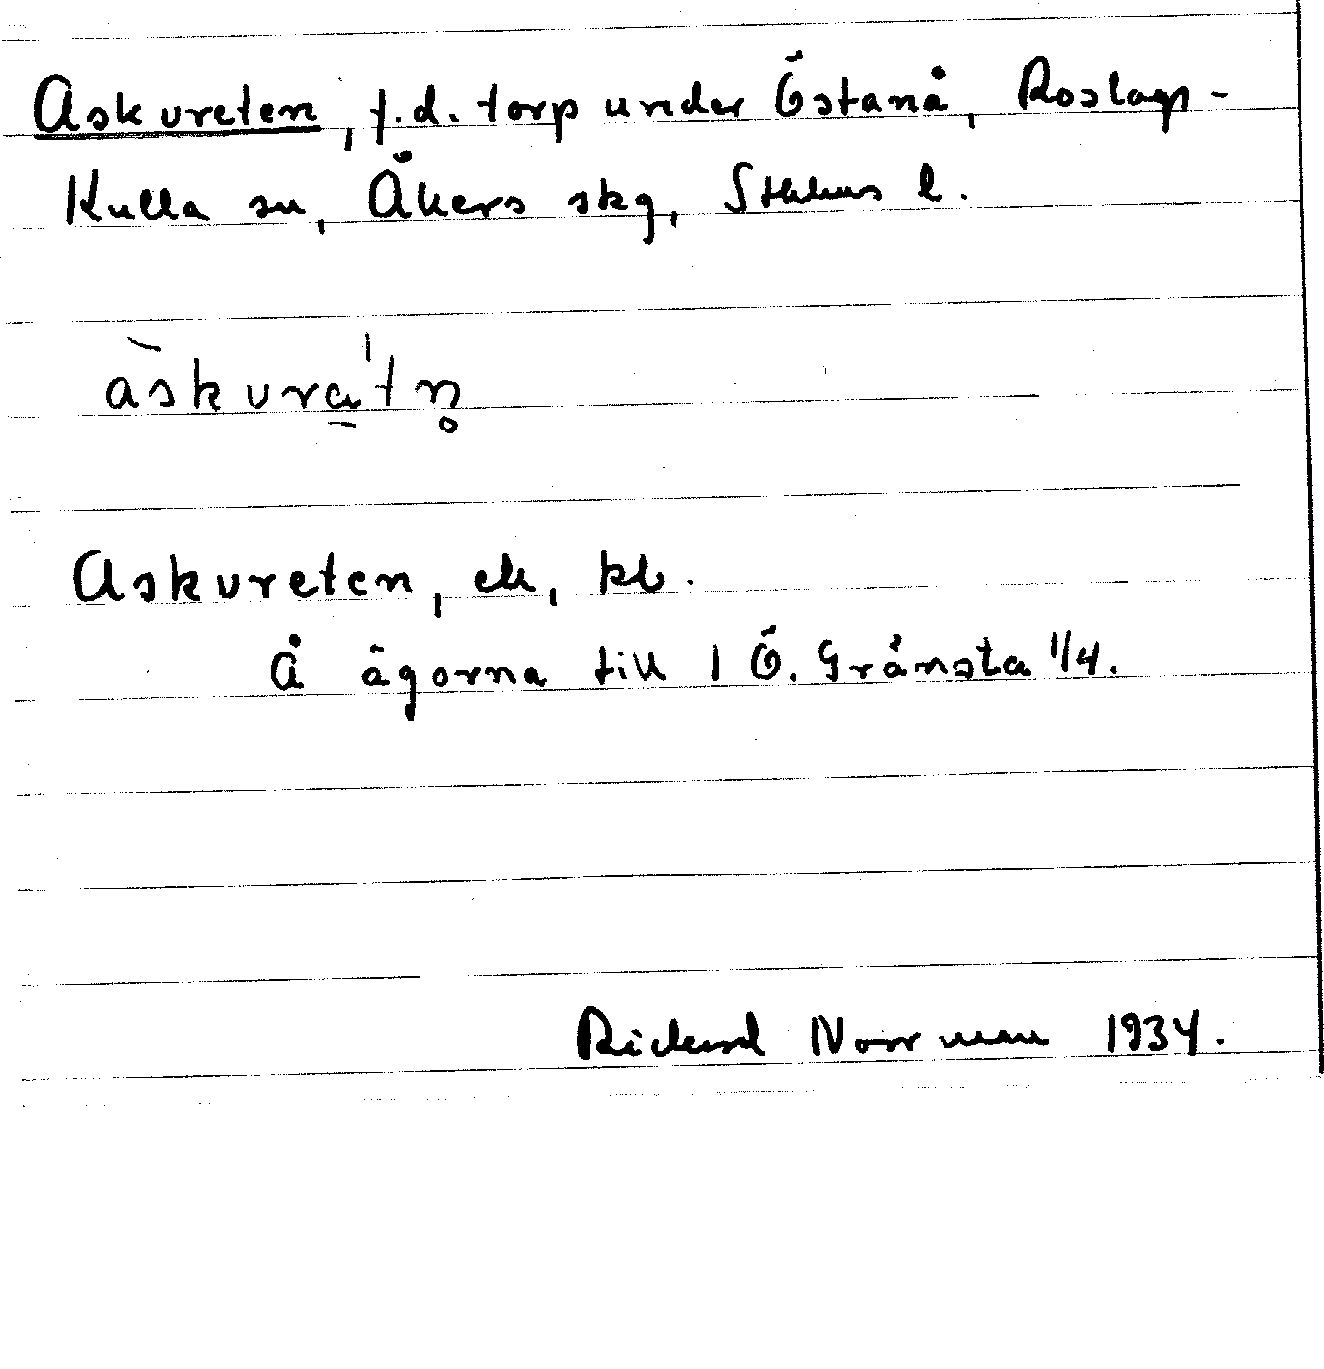 Askvreten, f.d. torp under Östanå, Roslags-
Kulla sn, Åkers skg, Sthlms l.
àskvra̠'tn̥
Askvreten, ek, kb.
Å ägorna till 1 Ö. Gränsta 1/4.
Rickard Norrman 1934.